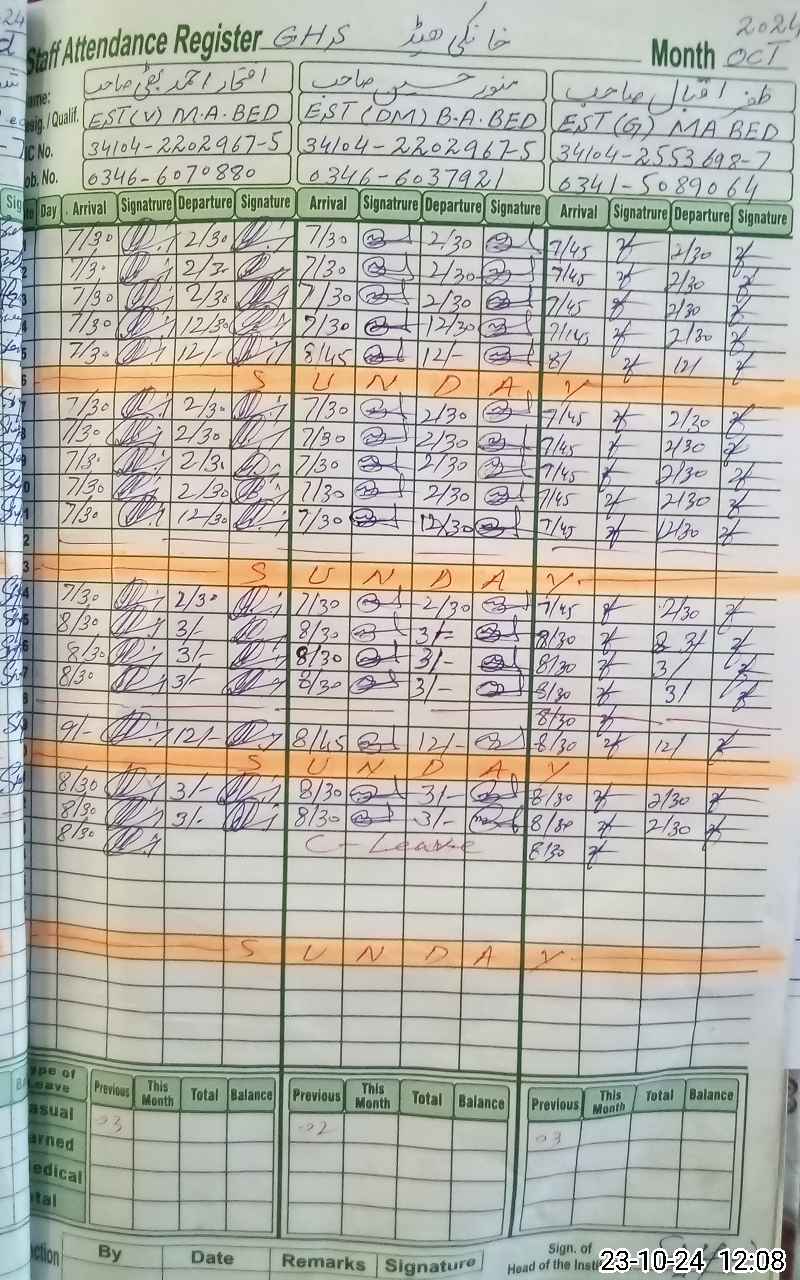 2024
Staff Attendance Register GHS خانکی ہیڈ Month OCT
Name: افتخار احمد بھٹی صاحب منور حسین صاحب ظفر اقبال صاحب
Desig. / Qualif. EST(V) M.A.BED EST(DM) B.A.BED EST(G) MA BED
IC No. 34104-2202967-5 34104-2202967-5 34104-2553698-7
ob. No. 0346-6070880 0346-6037921 0341-5089064
Day Arrival Signature Departure Signature Arrival Signatrure Departure Signature Arrival Signature Departure Signature
7/30 2/30 7/30 2/30 7/45 2/30
2 7/30 2/30 7/30 2/30 7/45 2/30
3 7/30 2/30 7/30 2/30 7/45 2/30
4 7/30 12/30 7/30 12/30 7/45 2/30
5 7/30 12/- 8/45 12/- 8/ 12/
6 S U N D A Y
7/30 2/30 7/30 2/30 7/45 2/30
8 7/30 2/30 7/30 2/30 7/45 2/30
9 7/30 2/30 7/30 2/30 7/45 2/30
0 7/30 2/30 7/30 2/30 7/45 2/30
1 7/30 12/30 7/30 12/30 7/45 12/30
2
3 S U N D A Y
4 7/30 2/30 7/30 2/30 7/45 2/30
5 8/30 3/- 8/30 3/- 8/30 3/
6 8/30 3/- 8/30 3/- 8/30 3/
7 8/30 3/- 8/30 3/- 8/30 3/
8 8/30
9/- 12/- 8/45 12/- 8/30 12/
S U N D A Y
8/30 3/- 8/30 3/- 8/30 2/30
8/30 3/- 8/30 3/- 8/30 2/30
8/30 C-Leave 8/30
S U N D A Y
ype of Leave Previous This Month Total Balance Previous This Month Total Balance Previous This Month Total Balance
asual 03 02 03
arned
edical
tal
ction By Date Remarks Signature Sign. of Head of the Insti
23-10-24 12:08